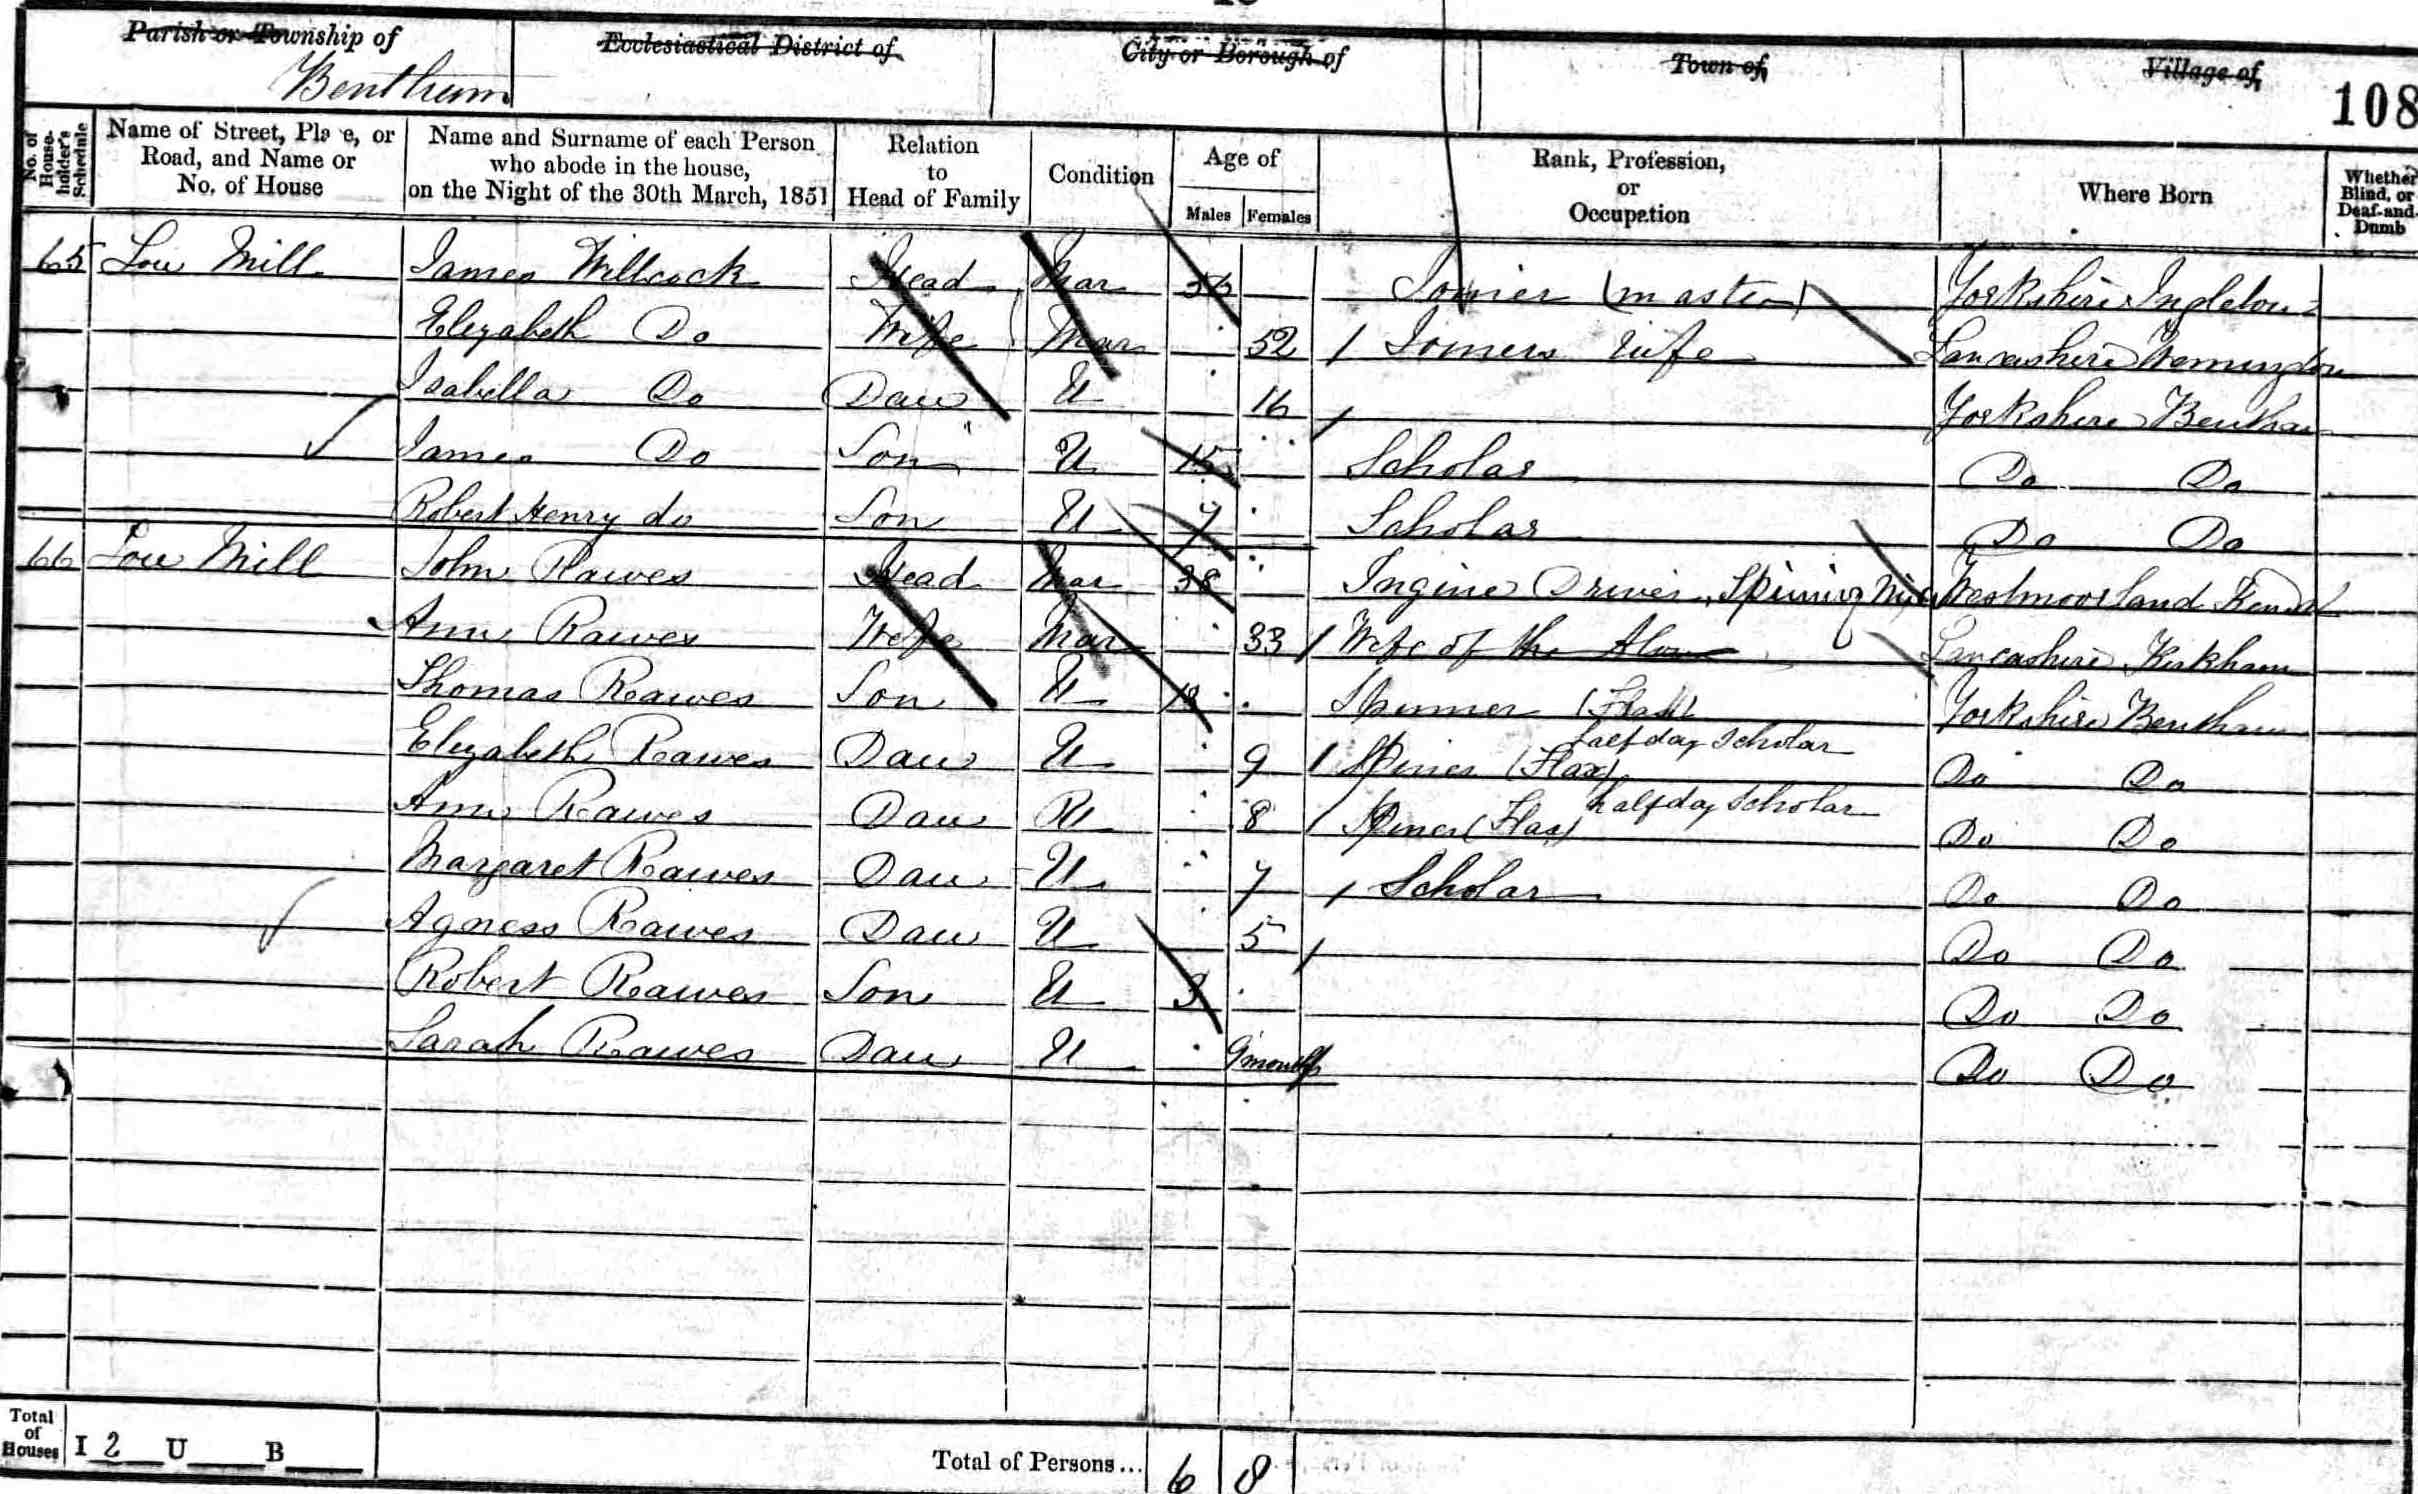 Parish or Township of Ecclesiastical District of City or Borough of Town of Village of
Bentham 108
No. of House-holder's Schedule
Name of Street, Place, or Road, and Name or No. of House
Name and Surname of each Person who abode in the house, on the Night of the 30th March, 1851
Relation to Head of Family
Condition
Age of
Males Females
Rank, Profession, or Occupation
Where Born
Whether Blind, or Deaf-and-Dumb
65 Low Mill James Willcock Head Mar Joiner (master) Yorkshire Ingleton
Elizabeth Do Wife Mar 52 Joiners wife Lancashire
Isabella Do Daw U 16 Yorkshire Bentham
James Do Son U 15 Scholar Do Do
Robert Henry do Son U 7 Scholar Do Do
66 Low Mill John Rawes Head Mar 38 Ingine Driver Spining Westmoorland Kendal
Ann Rawes Wife Mar 33 Wife of the Above Lancashire Kirkham
Thomas Rawes Son U Spinner (Flax) Yorkshire Bentham
Elizabeth Rawes Daw U 9 Spiner (Flax) half day Scholar Do Do
Ann Rawes Daw U 8 Spiner (Flax) half day Scholar Do Do
Margaret Rawes Daw U 7 Scholar Do Do
Agness Rawes Daw U 5 Do Do
Robert Rawes Son U 3 Do Do
Sarah Rawes Daw U 9 months Do Do
Total of Houses I 2 U B Total of Persons... 6 8